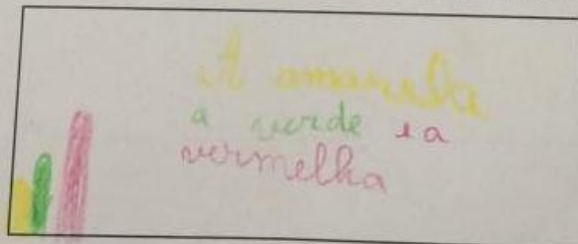 A amarela
a verde e a
vermelha